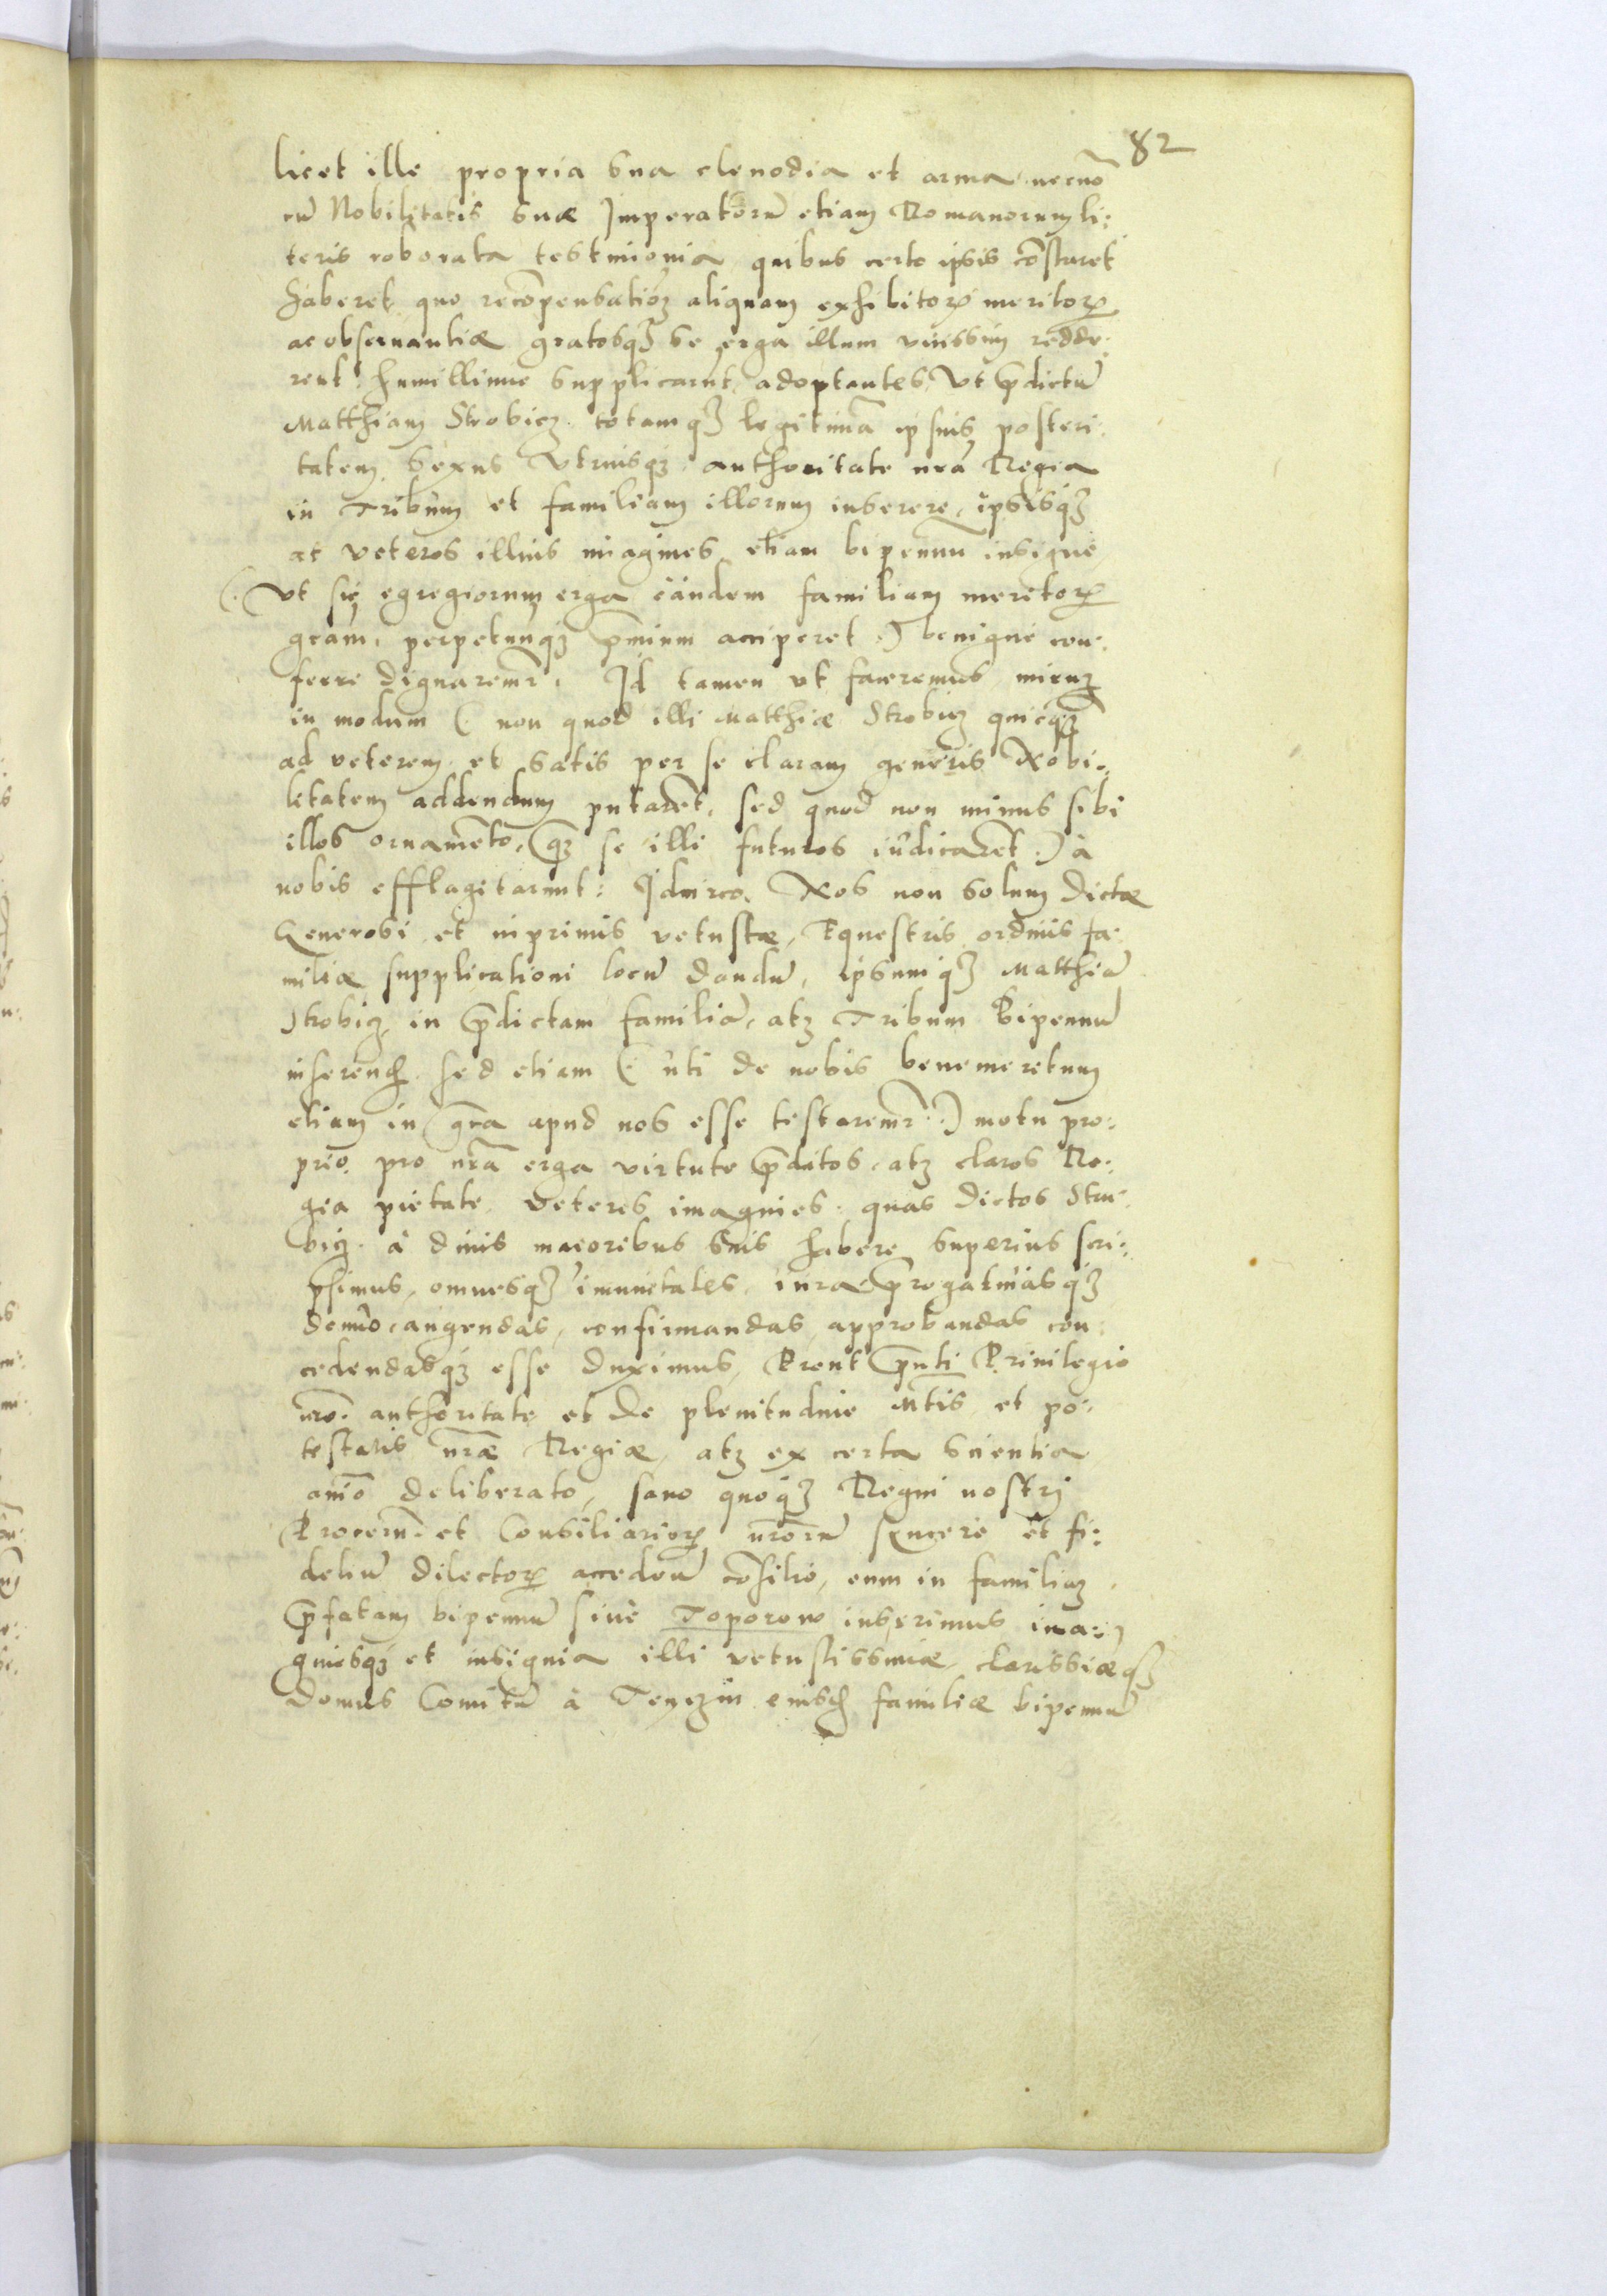 82
licet ille propria sua clenodia et arma, necnō
cū Nobilitatis suæ Imperatorū etiam Romanorum li:
teris roborata testimonia quibus certo ipsis cōstaret
haberet, quo recōpensatioꝫ aliquam exhibitoꝝ meritoꝝ
ac obseruantiæ gratosqꝫ se erga illum vicissim redde:
rent: humillime supplicarūt, adoptantes, Vt p̄dictū
Matthiam Strobicz totamqꝫ legitimā ipsius posteri:
tatem, sexus Vtriusqꝫ, authoritate nr̄a Regia
in Tribum et familiam illorum inserere, ipsisqꝫ
ac veteres illius imagines etiam bipennū insigne,
(. Vt sic egregiorum erga eandem familiam meritoꝝ
gr̄am, perpetuūqꝫ p̄mium acciperet .) benigne con:
ferre dignaremr̄. Id tamen ut faceremus, mirum
in modum (. non quod illi Matthiæ Strobicz quicq̄ꝫ
ad veterem et satis per se claram generis Nobi:
litatem addendum putarēt, sed quod non minus sibi
illos ornamēto, qꝫ se illi futuros iudicarēt .) à
nobis efflagitarunt: Idcirco, Nos non solum dictæ
Generosi et inprimis vetustæ, Equestris ordinis fa:
miliæ supplicationi locū dandū, ipsumqꝫ Matthiā
Strobicz in p̄dictam familiā, atqꝫ Tribum Bipennū
inserendū sed etiam (. uti de nobis benemeritum
etiam in gr̄a apud nos esse testaremr̄ .) motu pro:
prio, pro nr̄a erga virtute p̄ditos, atqꝫ claros Re:
gia pietate, veteres imagines, quas dictos Stru:
bicz à diuis maioribus suis habere superius scri:
psimus, omnesqꝫ imunitates, iura p̄rogatiuasqꝫ
denuo, augendas, confirmandas approbandas con
cedendasqꝫ esse duximus, Prout p̄nti Priuilegio
nr̄o. authoritate et de plenitudine Mtis et po:
testatis nr̄æ Regiæ, atqꝫ ex certa scientia
anīo deliberato, sano quoqꝫ Regni nostrj
Procerū et Consiliarioꝝ nr̄orū syncere et fi:
deliū dilectoꝝ accedēte cōsilio, eum in familiam
p̄fatam bipennū siue Toporow inserimus ima:
ginesqꝫ et insignia illi vetustissimæ, clarissiæqꝫ
Domus Comitū à Tenczin eiusdē familiæ bipennū